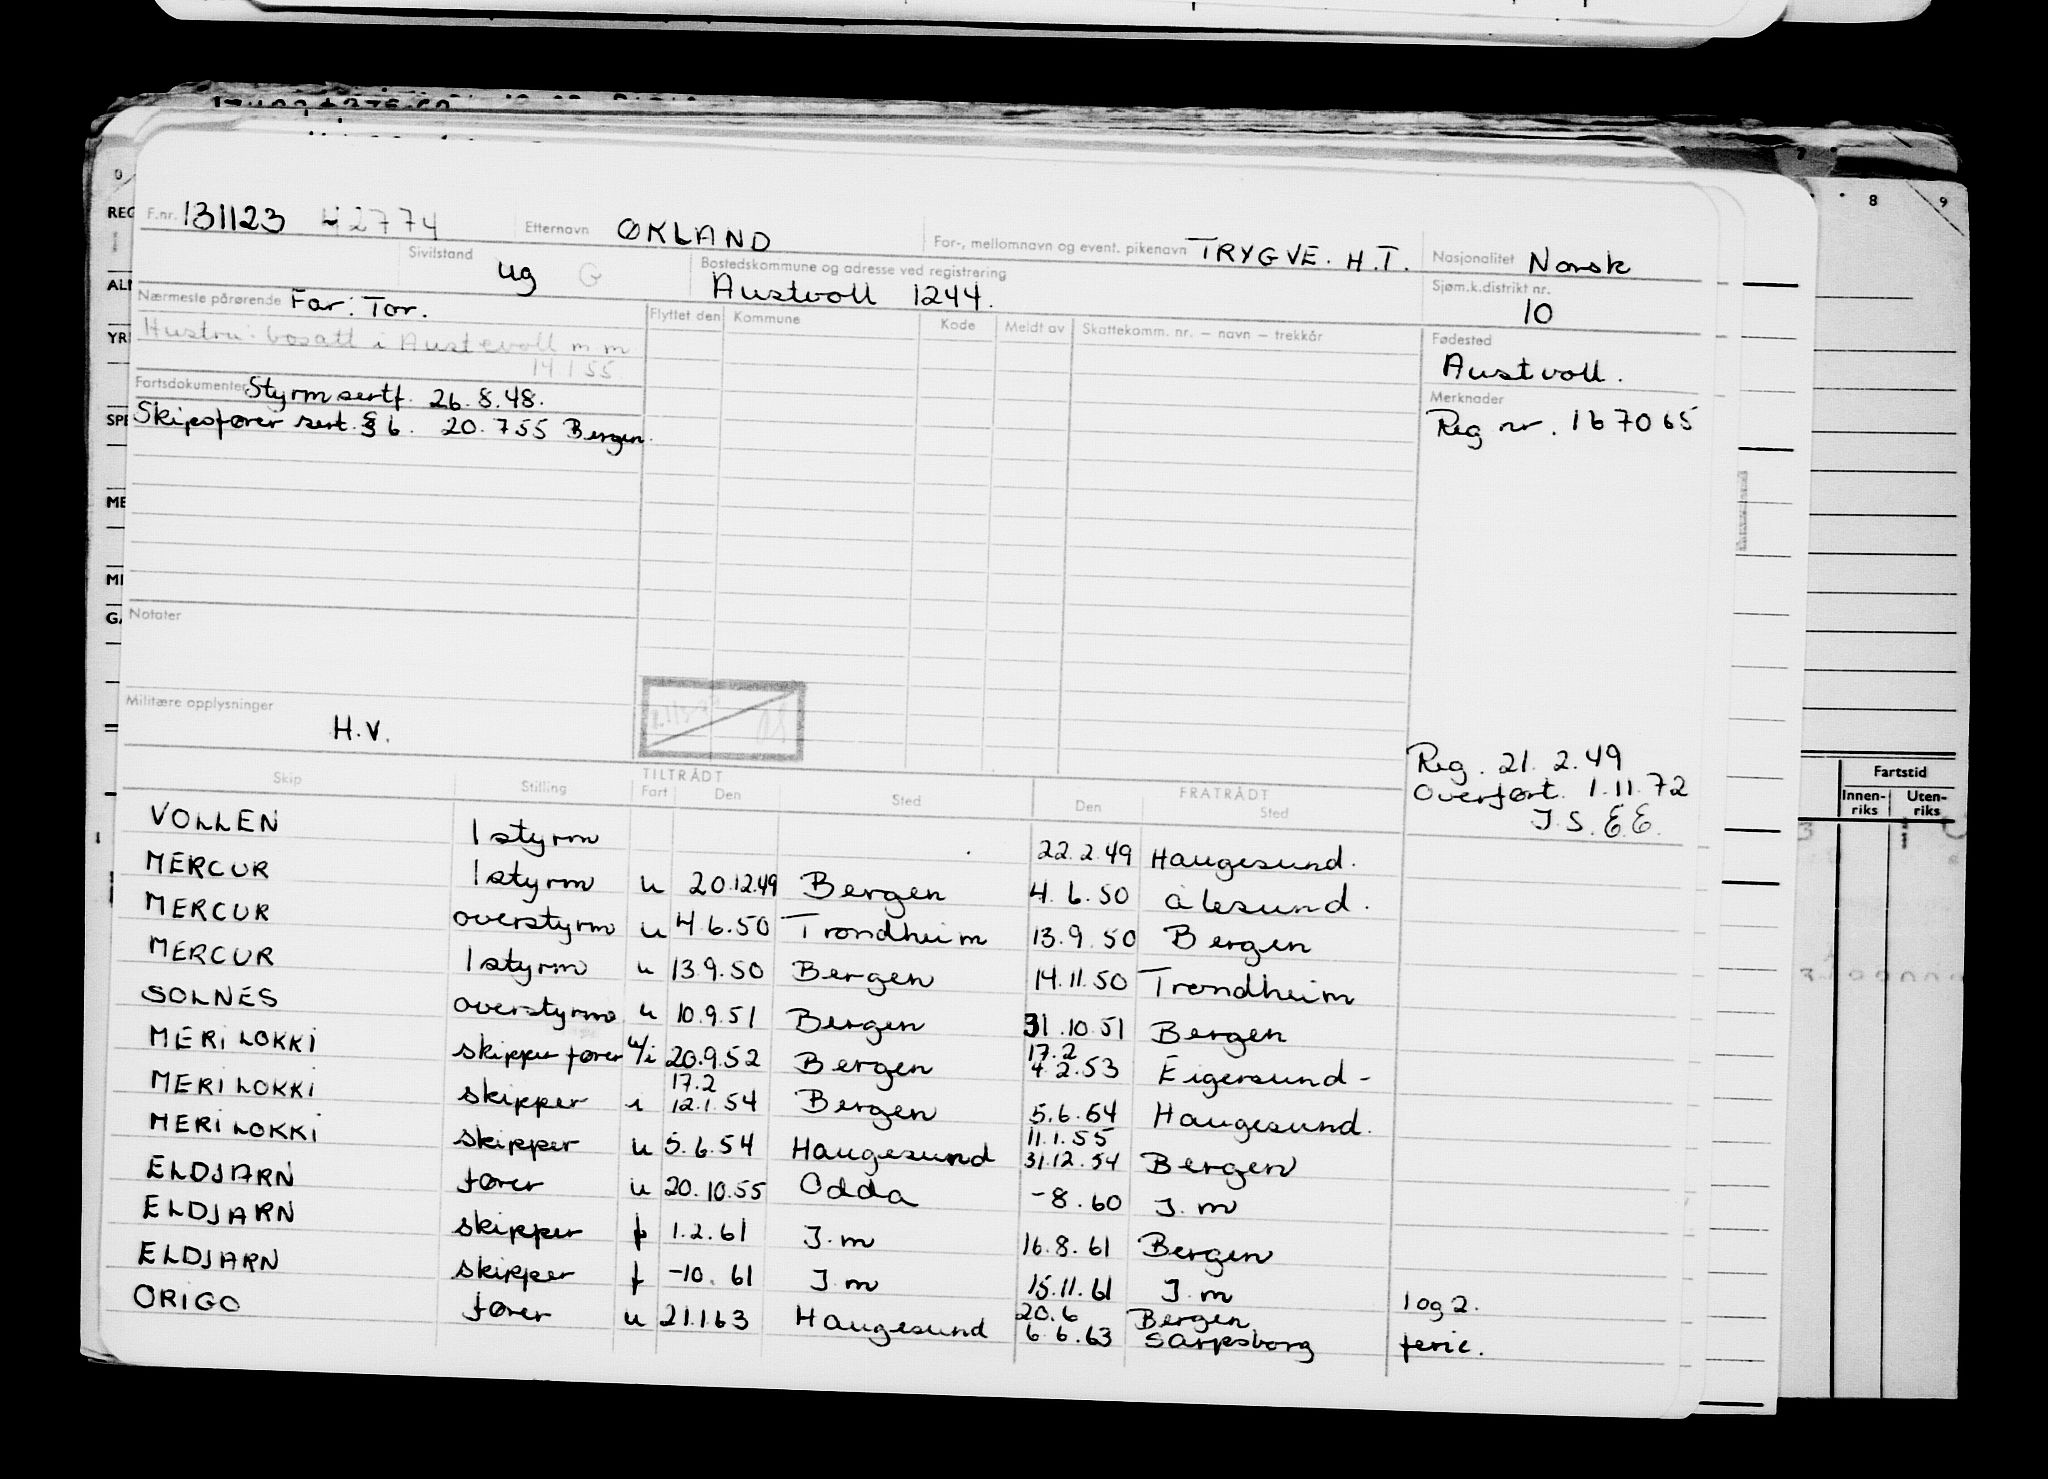 F.nr. 131123 42774 Etternavn ØKLAND For-, mellomnavn og event. pikenavn TRYGVE. H.T. Nasjonalitet Norsk
Sivilstand ug G Bostedskommune og adresse ved registrering Austvoll 1244. Sjøm.k.distrikt nr. 10
Nærmeste pårørende Far: Tor.
Hustru: bosatt i Austevoll m.m
14 1 55
Flyttet den Kommune Kode Meldt av Skattekomm. nr. – navn – trekkår
Fødested
Austvoll.
Fartsdokumenter Styrm sertf. 26.8.48.
Skipsfører sert. § 6. 20.755 Bergen.
Merknader
Reg nr. 167065
Notater
Militære opplysninger
H.V.
Reg. 21.2.49
Overført. 1.11.72
J.S.E.E.
TILTRÅDT FRATRÅDT
Skip Stilling Fart Den Sted Den Sted
VOLLEN 1styrm 22.2.49 Haugesund.
MERCUR 1styrm u 20.12.49 Bergen 4.6.50 ålesund.
MERCUR overstyrm u 4.6.50 Trondheim 13.9.50 Bergen
MERCUR 1styrm u 13.9.50 Bergen 14.11.50 Trondheim
SOLNES overstyrm u 10.9.51 Bergen 31.10.51 Bergen
MERI LOKKI skipper fører u/i 20.9.52 Bergen 17.2 4.2.53 Eigersund-
MERI LOKKI skipper i 17.2 12.1.54 Bergen 5.6.54 Haugesund.
MERI LOKKI skipper u 5.6.54 Haugesund 11.1.55 31.12.54 Bergen
ELDJARN fører u 20.10.55 Odda -8.60 J.m
ELDJARN skipper f 1.2.61 J.m 16.8.61 Bergen
ELDJARN skipper f -10.61 J.m 15.11.61 J.m 1 og 2.
ORIGO fører u 21.1.63 Haugesund 20.6 6.6.63 Bergen Sarpsborg ferie.
8 9
Fartstid
Innen-riks Uten-riks